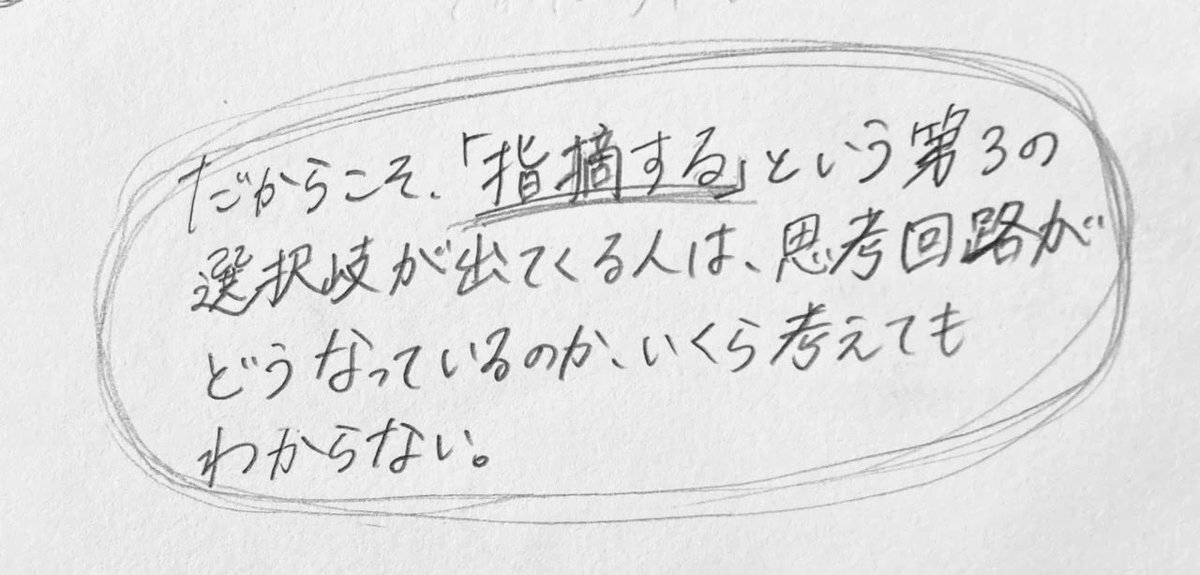 だからこそ、「指摘する」という第3の
選択岐が出てくる人は、思考回路が
どうなっているのか、いくら考えても
わからない。